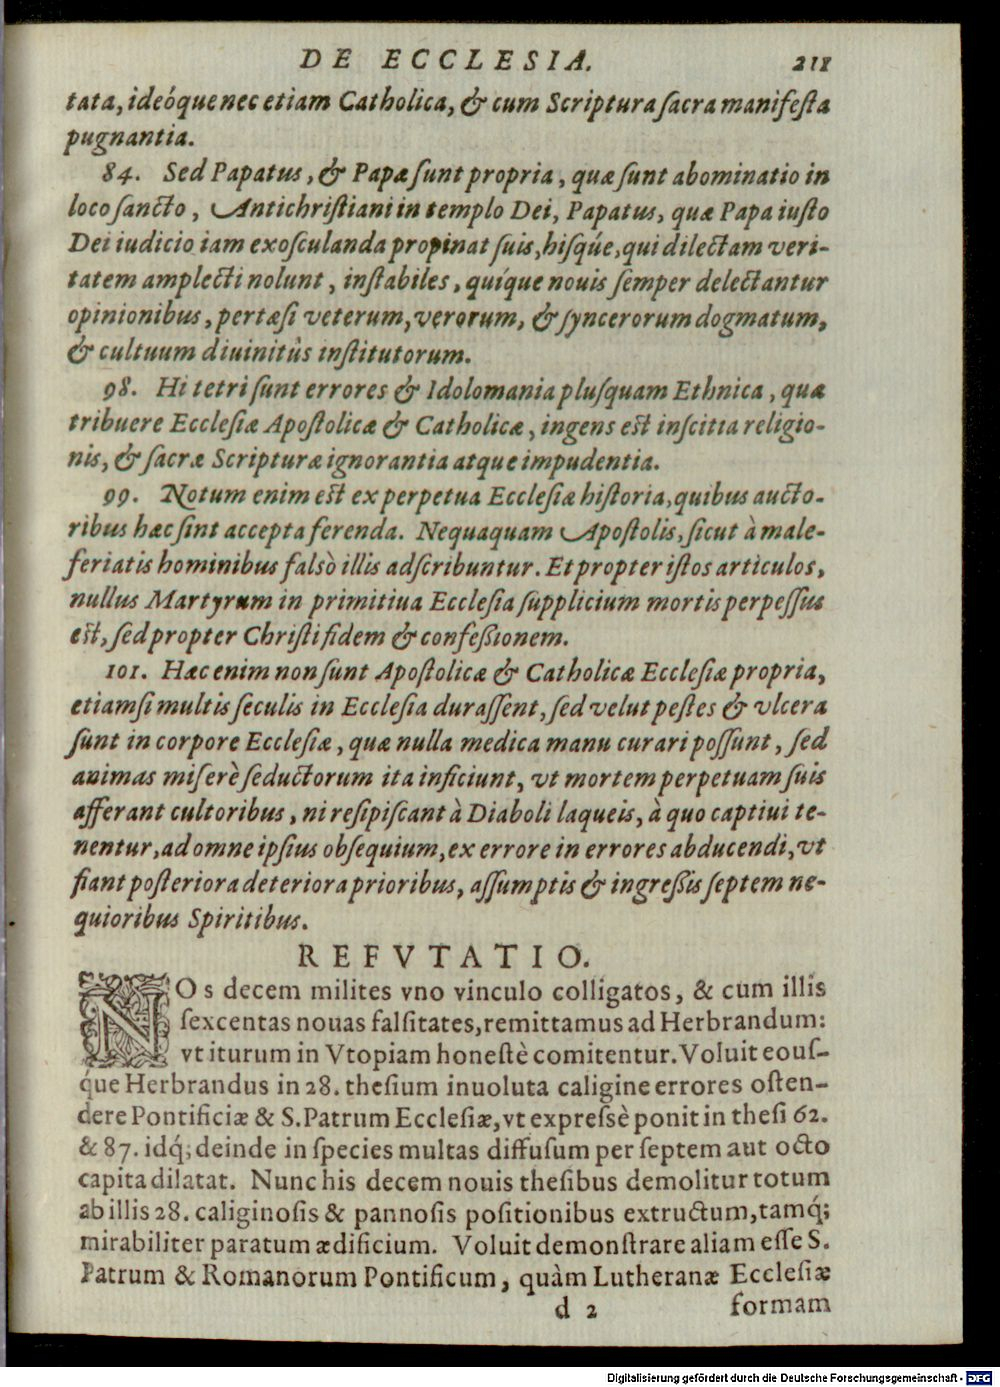 DE ECCLESIA. 211
tata, ideóque nec etiam Catholica, & cum Scriptura sacra manifesta
pugnantia.
84. Sed Papatus, & Papæ sunt propria, quæ sunt abominatio in
loco sancto, Antichristiani in templo Dei, Papatus, quæ Papa iusto
Dei iudicio iam exosculanda propinat suis, hisq́ue, qui dilectam veri-
tatem amplecti nolunt, instabiles, quíque nouis semper delectantur
opinionibus, pertæsi veterum, verorum, & syncerorum dogmatum,
& cultuum diuinitùs institutorum.
98. Hi tetri sunt errores & Idolomania plusquam Ethnica, quæ
tribuere Ecclesiæ Apostolicæ & Catholicæ, ingens est inscitia religio-
nis, & sacræ Scripturæ ignorantia atque impudentia.
99. Notum enim est ex perpetua Ecclesiæ historia, quibus aucto-
ribus hæc sint accepta ferenda. Nequaquam Apostolis, sicut à male-
feriatis hominibus falsò illis adscribuntur. Et propter istos articulos,
nullus Martyrum in primitiua Ecclesia supplicium mortis perpessus
est, sed propter Christi fidem & confeßionem.
101. Hæc enim non sunt Apostolicæ & Catholicæ Ecclesiæ propria,
etiamsi multis seculis in Ecclesia durassent, sed velut pestes & vlcera
sunt in corpore Ecclesiæ, quæ nulla medica manu curari possunt, sed
animas miserè seductorum ita inficiunt, vt mortem perpetuam suis
afferant cultoribus, ni resipiscant à Diaboli laqueis, à quo captiui te-
nentur, ad omne ipsius obsequium, ex errore in errores abducendi, vt
fiant posteriora deteriora prioribus, assumptis & ingreßis septem ne-
quioribus Spiritibus.
REFVTATIO.
NOs decem milites vno vinculo colligatos, & cum illis
sexcentas nouas falsitates, remittamus ad Herbrandum:
vt iturum in Vtopiam honestè comitentur. Voluit eous-
q́ue Herbrandus in 28. thesium inuoluta caligine errores osten-
dere Pontificiæ & S. Patrum Ecclesiæ, vt expressè ponit in thesi 62.
& 87. idq́; deinde in species multas diffusum per septem aut octo
capita dilatat. Nunc his decem nouis thesibus demolitur totum
ab illis 28. caliginosis & pannosis positionibus extructum, tamq́;
mirabiliter paratum ædificium. Voluit demonstrare aliam esse S.
Patrum & Romanorum Pontificum, quàm Lutheranæ Ecclesiæ
d 2 formam
Digitalisierung gefördert durch die Deutsche Forschungsgemeinschaft - DFG